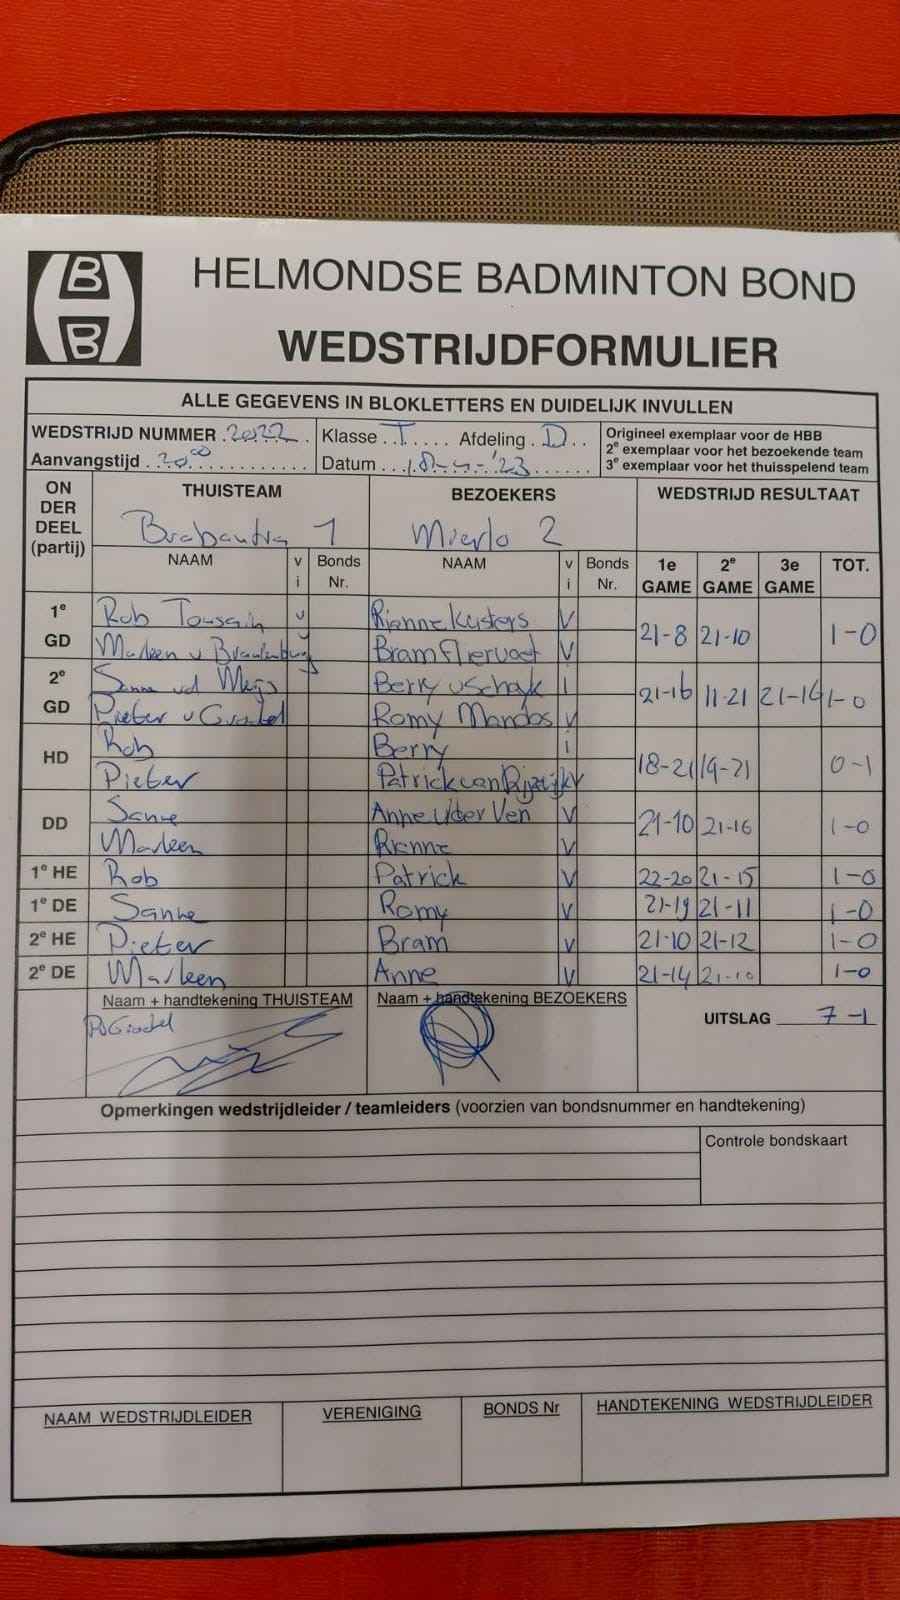 B
B
HELMONDSE BADMINTON BOND
WEDSTRIJDFORMULIER
ALLE GEGEVENS IN BLOKLETTERS EN DUIDELIJK INVULLEN
WEDSTRIJD NUMMER 2022 Klasse T Afdeling D Origineel exemplaar voor de HBB
2e exemplaar voor het bezoekende team
Aanvangstijd 20:00 Datum '23 3e exemplaar voor het thuisspelend team
ON DER DEEL (partij) THUISTEAM BEZOEKERS WEDSTRIJD RESULTAAT
Brabantia 1 Mierlo 2
NAAM v i Bonds Nr. NAAM v i Bonds Nr. 1e GAME 2e GAME 3e GAME TOT.
1e GD Rob Tousain v Rienne Kusters V 21-8 21-10 1-0
Marleen v v Bram Fliervoet V
2e GD Sanne vd Berry v Schayk i 21-16 11-21 1-0
Pieter v Romy Mandos v
HD Rob Berry i 18-21 19-21 0-1
Pieter Patrick van v
DD Sanne Anne v der Ven V 21-10 21-16 1-0
Marleen Rienne V
1e HE Rob Patrick V 22-20 21-15 1-0
1e DE Sanne Romy V 21-19 21-11 1-0
2e HE Pieter Bram v 21-10 21-12 1-0
2e DE Marleen Anne V 21-14 21-10 1-0
Naam + handtekening THUISTEAM Naam + handtekening BEZOEKERS
UITSLAG 7-1
Opmerkingen wedstrijdleider / teamleiders (voorzien van bondsnummer en handtekening)
Controle bondskaart
NAAM WEDSTRIJDLEIDER VERENIGING BONDS Nr HANDTEKENING WEDSTRIJDLEIDER